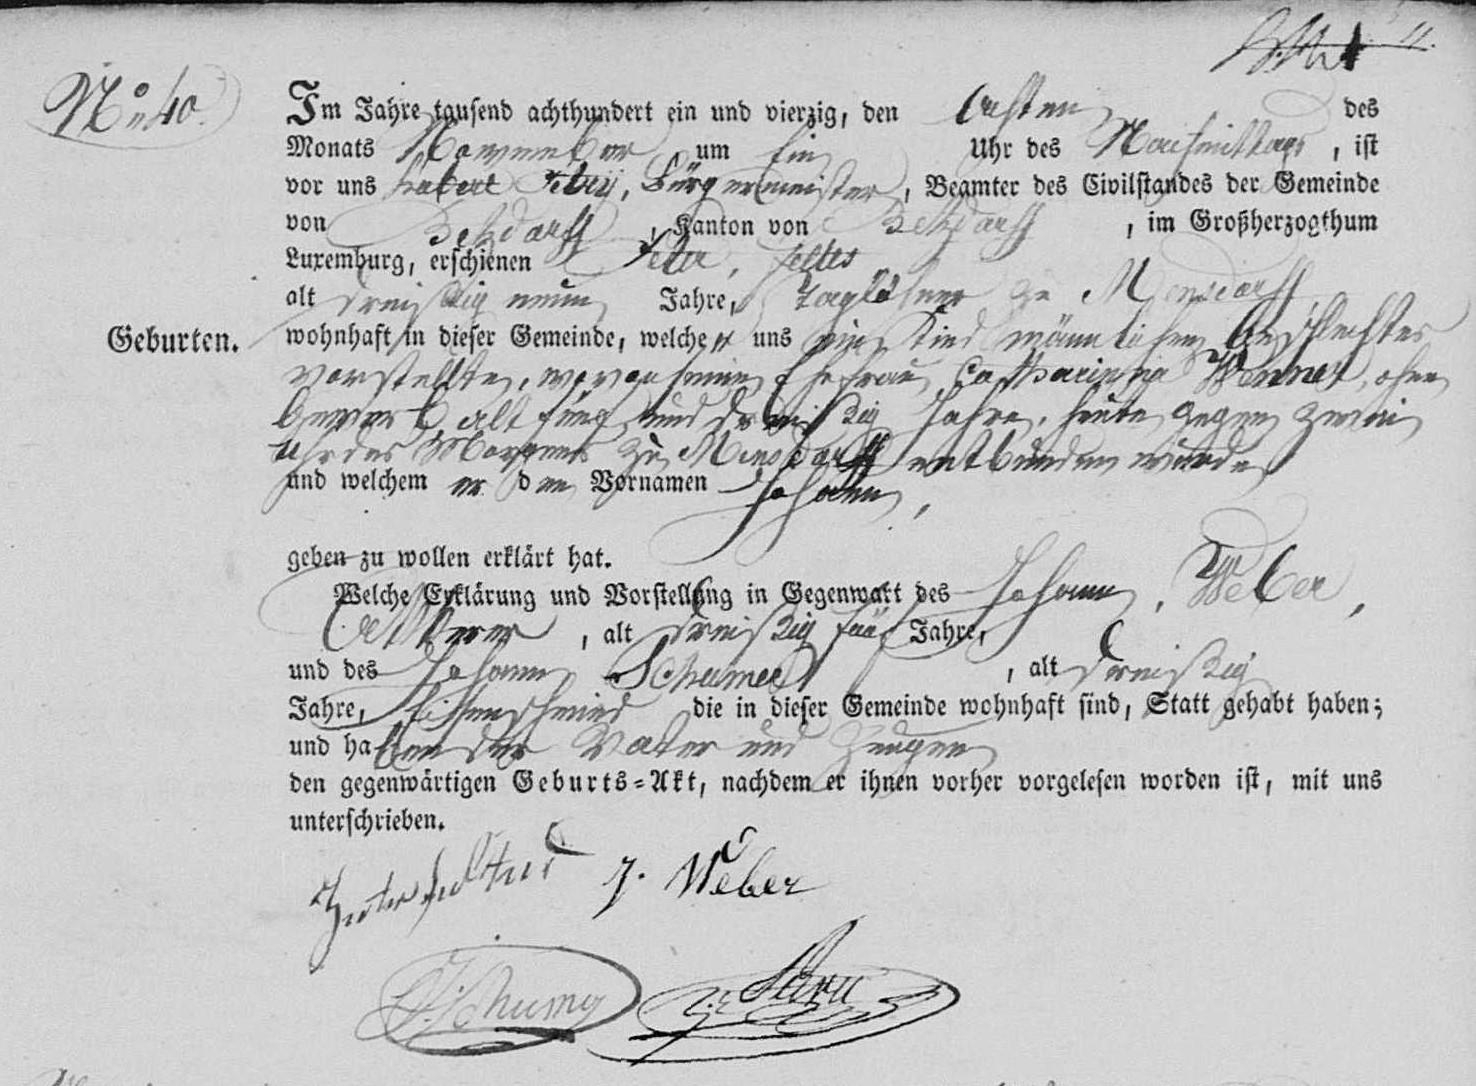 No 40.
Im Jahre tausend achthundert ein und vierzig, den Achten des
Monats November um Ein Uhr des Nachmittags, ist
vor uns Bürgermeister, Beamter des Civilstandes der Gemeinde
von Betzdorff, Kanton von Betzdorff, im Großherzogthum
Luxemburg, erschienen Peter, Feltes
alt dreißig neun Jahre, Taglöhner zu Mensdorff
Geburten.
wohnhaft in dieser Gemeinde, welcher uns ein Kind männlichen Geschlechtes
vorstellte, wovon seine Ehefrau, Catharina Wenner, ohne
Gewerb alt fünf und dreißig Jahre, heute gegen zwei
Uhr des Morgens zu Mensdorff entbunden wurde
und welchem er den Vornamen Johann,
geben zu wollen erklärt hat.
Welche Erklärung und Vorstellung in Gegenwart des Johann, Weber,
Ackerer, alt dreißig fünf Jahre,
und des Johann Schumer, alt dreißig
Jahre, die in dieser Gemeinde wohnhaft sind, Statt gehabt haben;
und haben der Vater und Zeugen
den gegenwärtigen Geburts=Akt, nachdem er ihnen vorher vorgelesen worden ist, mit uns
unterschrieben.
J. Weber